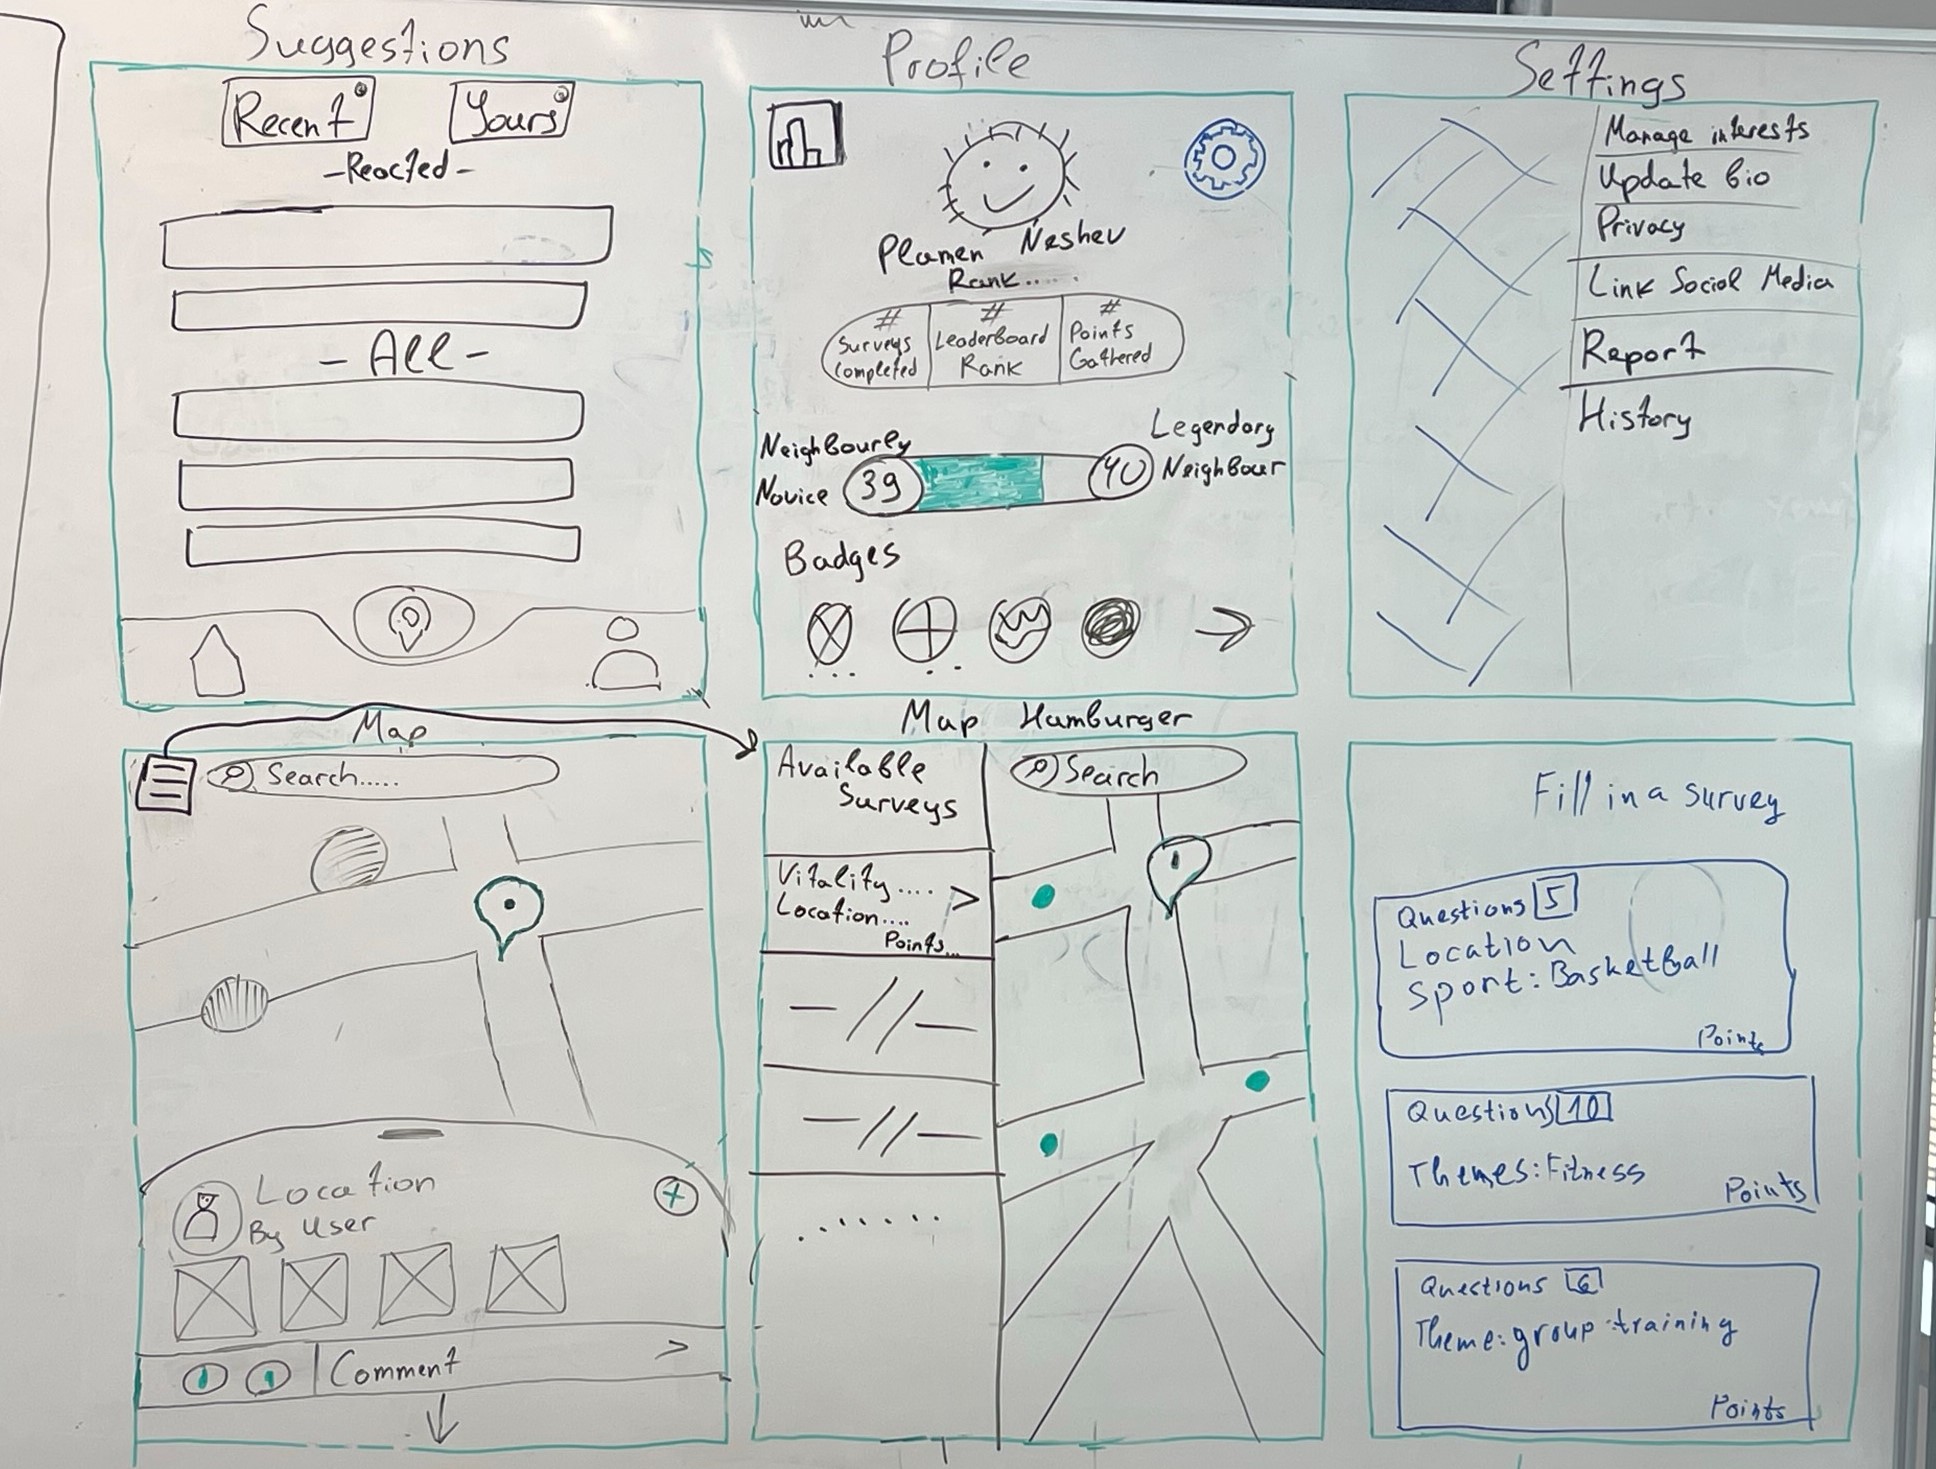 Suggestions
Recent
Yours
-Reacted-
- All -
Profile
Plamen Neshev
Rank.....
#
Surveys
Completed
#
Leaderboard
Rank
#
Points
Gathered
Neighbourly
Novice
39
40
Legendary
Neighbour
Badges
Settings
Manage interests
Update bio
Privacy
Link Social Media
Report
History
Map
Search.....
Location
By User
Comment
Map Hamburger
Available
Surveys
Vitality....
Location....
Points...
Search
Fill in a survey
Questions 5
Location
Sport: Basketball
Points
Questions 10
Themes: Fitness
Points
Questions 6
Theme: group training
Points